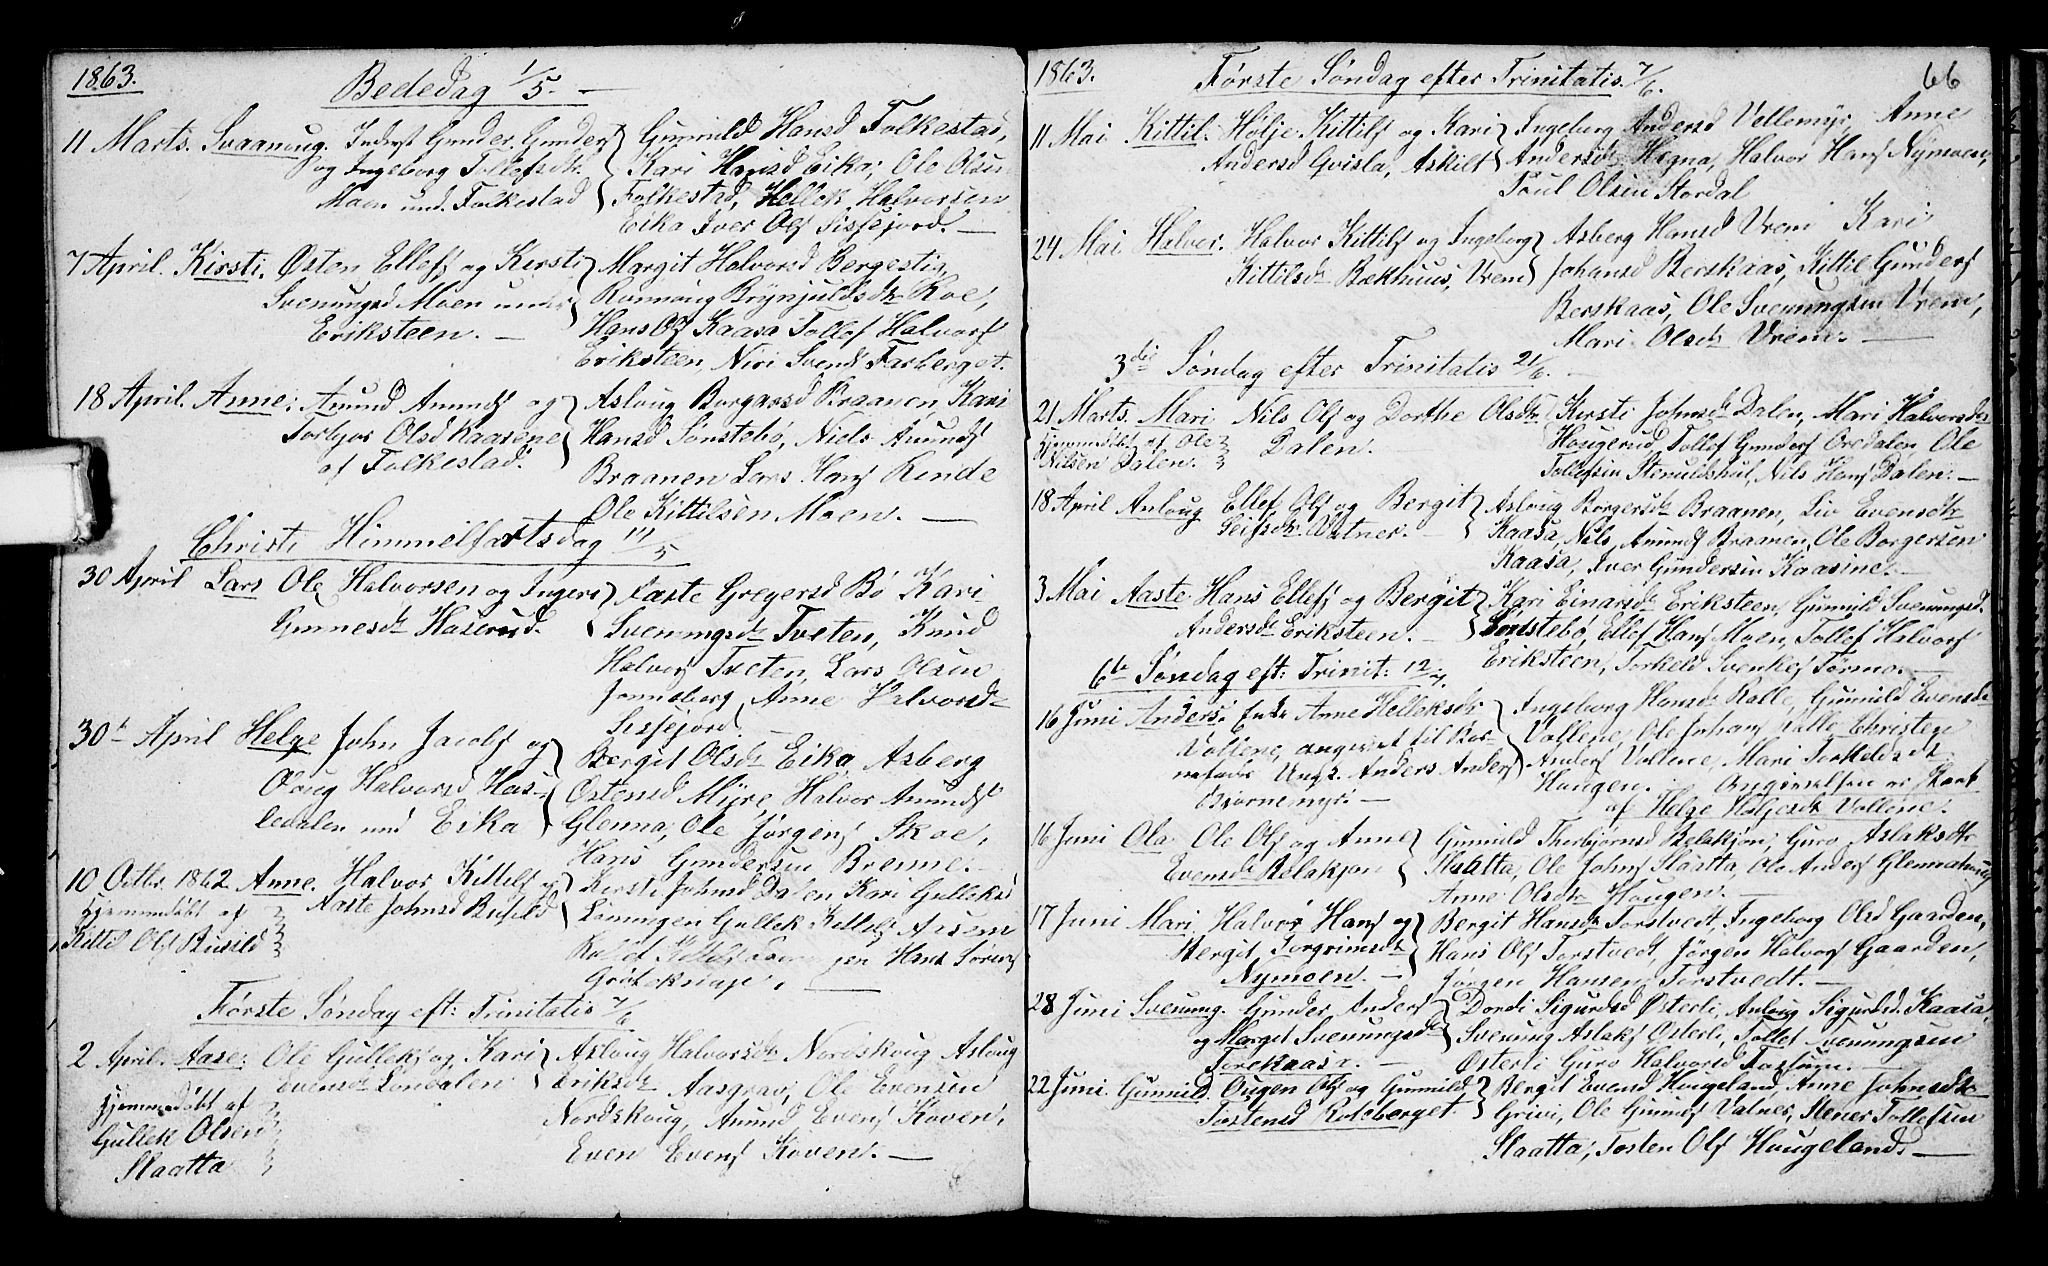 1863.
Bededag 1/5. —
11 Marts. Svaanoug. Inderst Gunder Gunders
og Ingeborg Tollefsdtr
Moen und. Folkestad
Gunnild Hansd Folkestad,
Kari Hansd Eika, Ole Olsen
Folkestad, Hellek Halvorsen
Eika Iver Ols Sissejord. —
7 April. Kirsti. Østen Ellefs og Kirsti
Svenungsd Moen under
Eriksteen. —
Margit Halvorsd Bergestig,
Rønnoug Brynjuldsdtr Roe,
Hans Ols Kaasa Tollef Halvors
Eriksteen Niri Svends Farberget.
18 April. Anne: Amund Amunds og
Torbjør Olsd Kaasene
af Folkestad.
Asloug Borgarsd Braanen, Kari
Hansd Sønstebø, Niels Amunds
Braanen Lars Hans Rinde
Ole Kittilsen Moen. —
Christi Himmelfartsdag 14/5
30 April Lars Ole Halvorsen og Ingeri
Gunnesdtr Haserud.
Aaste Gregersd Bø Kari
Svenungsdtr Tveten, Knud
Halvors Tveten, Lars Olsen
Jønneberg, Anne Halvorsdtr
Sissejord. —
30t April Helge John Jacobs og
Oloug Halvorsd Has-
ledalen und Eika
Bergit Olsdr Eika, Asberg
Østensd Myre, Halvor Amunds
Glenna, Ole Jørgens Skoe,
Hans Gundersen Brenne. —
10 Octbr. 1862 Anne. Halvor Kittils og
Aaste Johnsd Busild
hjemmedøbt af
Kittil Ols Busild
Kirsti Johnsd Dalen Kari Gulleksd
Lønningen Gullek Kittils Aasen
Hans Søren
Grøteknap. —
Første Søndag eft: Trinitatis 7/6
2 April. Aase: Ole Gulleks og Kari
Evensdr Londalen
hjemmedøbt af
Gullek Olsen
Staatta
Asloug Halvorsdr Nordskoug Aslaug
Eriksdr Aasgrav, Ole Evensen
Nordskoug, Amund Evens Koven,
Even Evens Koven. —
1863.
66
Første Søndag efter Trinitatis. 7/6.
11 Mai Kittil. Hølje Kittils og Kari
Andersd Gvisla, Askilt
Ingeborg Andersd Vollemyr, Anne
Andersdr Hegna, Halvor Hans Nymoen,
Poul Olsen Stordal
24 Mai Halvor. Halvor Kittils og Ingeborg
Kittilsdr Bækhuus, Vrem
Asberg Hansd Vrem Kari
Johansd Berskaas, Kittil Gunders
Berskaas, Ole Svenungsen Vrem,
Mari Olsdr Vrem. —
3die Søndag efter Trinitatis 21/6. —
21 Marts. Mari Nils Ols og Dorthe Olsdr
Dalen. —
hjemmedøbt af Ole
Nilsen Dalen.
Kirsti Johnsdr Dalen, Mari Halvorsdtr
Hougerud, Tollef Gunders Oredalen Ole
Tollefsen Stenuldshul, Nils Hans Dalen. —
18 April Anloug Ellef Ols og Bergit
Leifsdtr. Vatner. —
Asloug Borgersdr Braanen, Liv Evensdtr
Kaasa, Nils Amunds Braanen, Ole Borgersen
Kaasa, Iver Gundersen Kaasine. —
3 Mai Aaste Hans Ellefs og Bergit
Andersdr Eriksteen. —
Kari Einarsdr Eriksteen, Gunnild Svenungsd.
Sønstebø, Ellef Hans Moen, Tollef Halvors
Eriksteen, Torkeld Svenkes Tørmo. —
6te Søndag eft: Trinit: 12/7
16 Juni Anders: Enke Anne Helleksdr
Vollene, angivet til Bar-
nefader Ungk. Anders Anders
Bjørnemyr. —
Ingeborg Hansdr Valle, Gunnild Evensdr
Vollene, Ole Johans Valle Christen
Anders Vollene, Mari Torkeldsdtr
Hougen. Angivelsen er skeet
af Helge Høljesdtr Vollene.
16 Juni Ola Ole Ols og Anne
Evensdr Relakjøn
Gunnild Thorbjørnsd Relakjøn, Guro Aslaksdtr
Staatta, Ole Johns Staatta, Ole Anders Glennehoug
Anne Olsdtr Hougen. —
17 Juni Mari. Halvor Hans og
Bergit Torgrimsdr
Nymoen. —
Bergit Hansdr Torstvedt, Ingeborg Olsd Gaarden,
Hans Ols Torstvedt, Jørgen Halvors Gaarden,
Jørgen Hansen Torstvedt. —
28 Juni Svenung. Gunder Anders
og Margit Svenungsdr
Torekaas. —
Dordi Sigurdsd Østerli, Anloug Sigurdsd Kaasa,
Svenung Aslaks Østerli, Tollef Svenungsen
Østerli Guro Halvorsd Fossum. —
22 Juni Gunnild. Ougen Ols og Gunnild
Tostensd Roteberget
Bergit Evensd Hougeland, Anne Johnsdtr
Grivi, Ole Gunners Valnes, Stener Tollefsen
Staatta, Tosten Ols Hougeland. —